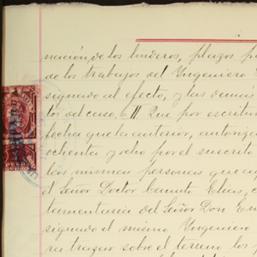 nación, de los linderos, plazos p
de los trabajos del Ingeniero
signado al efecto, y las demás
tos del caso. 6 II Que por escritu
fecha que la anterior, autorizad
ochenta y ocho por el suscrito
las mismas personas que
el Señor Doctor Camilo Elías,
tamentaria del Señor Don En
signado el mismo Ingeniero
ra trazar sobre el terreno los